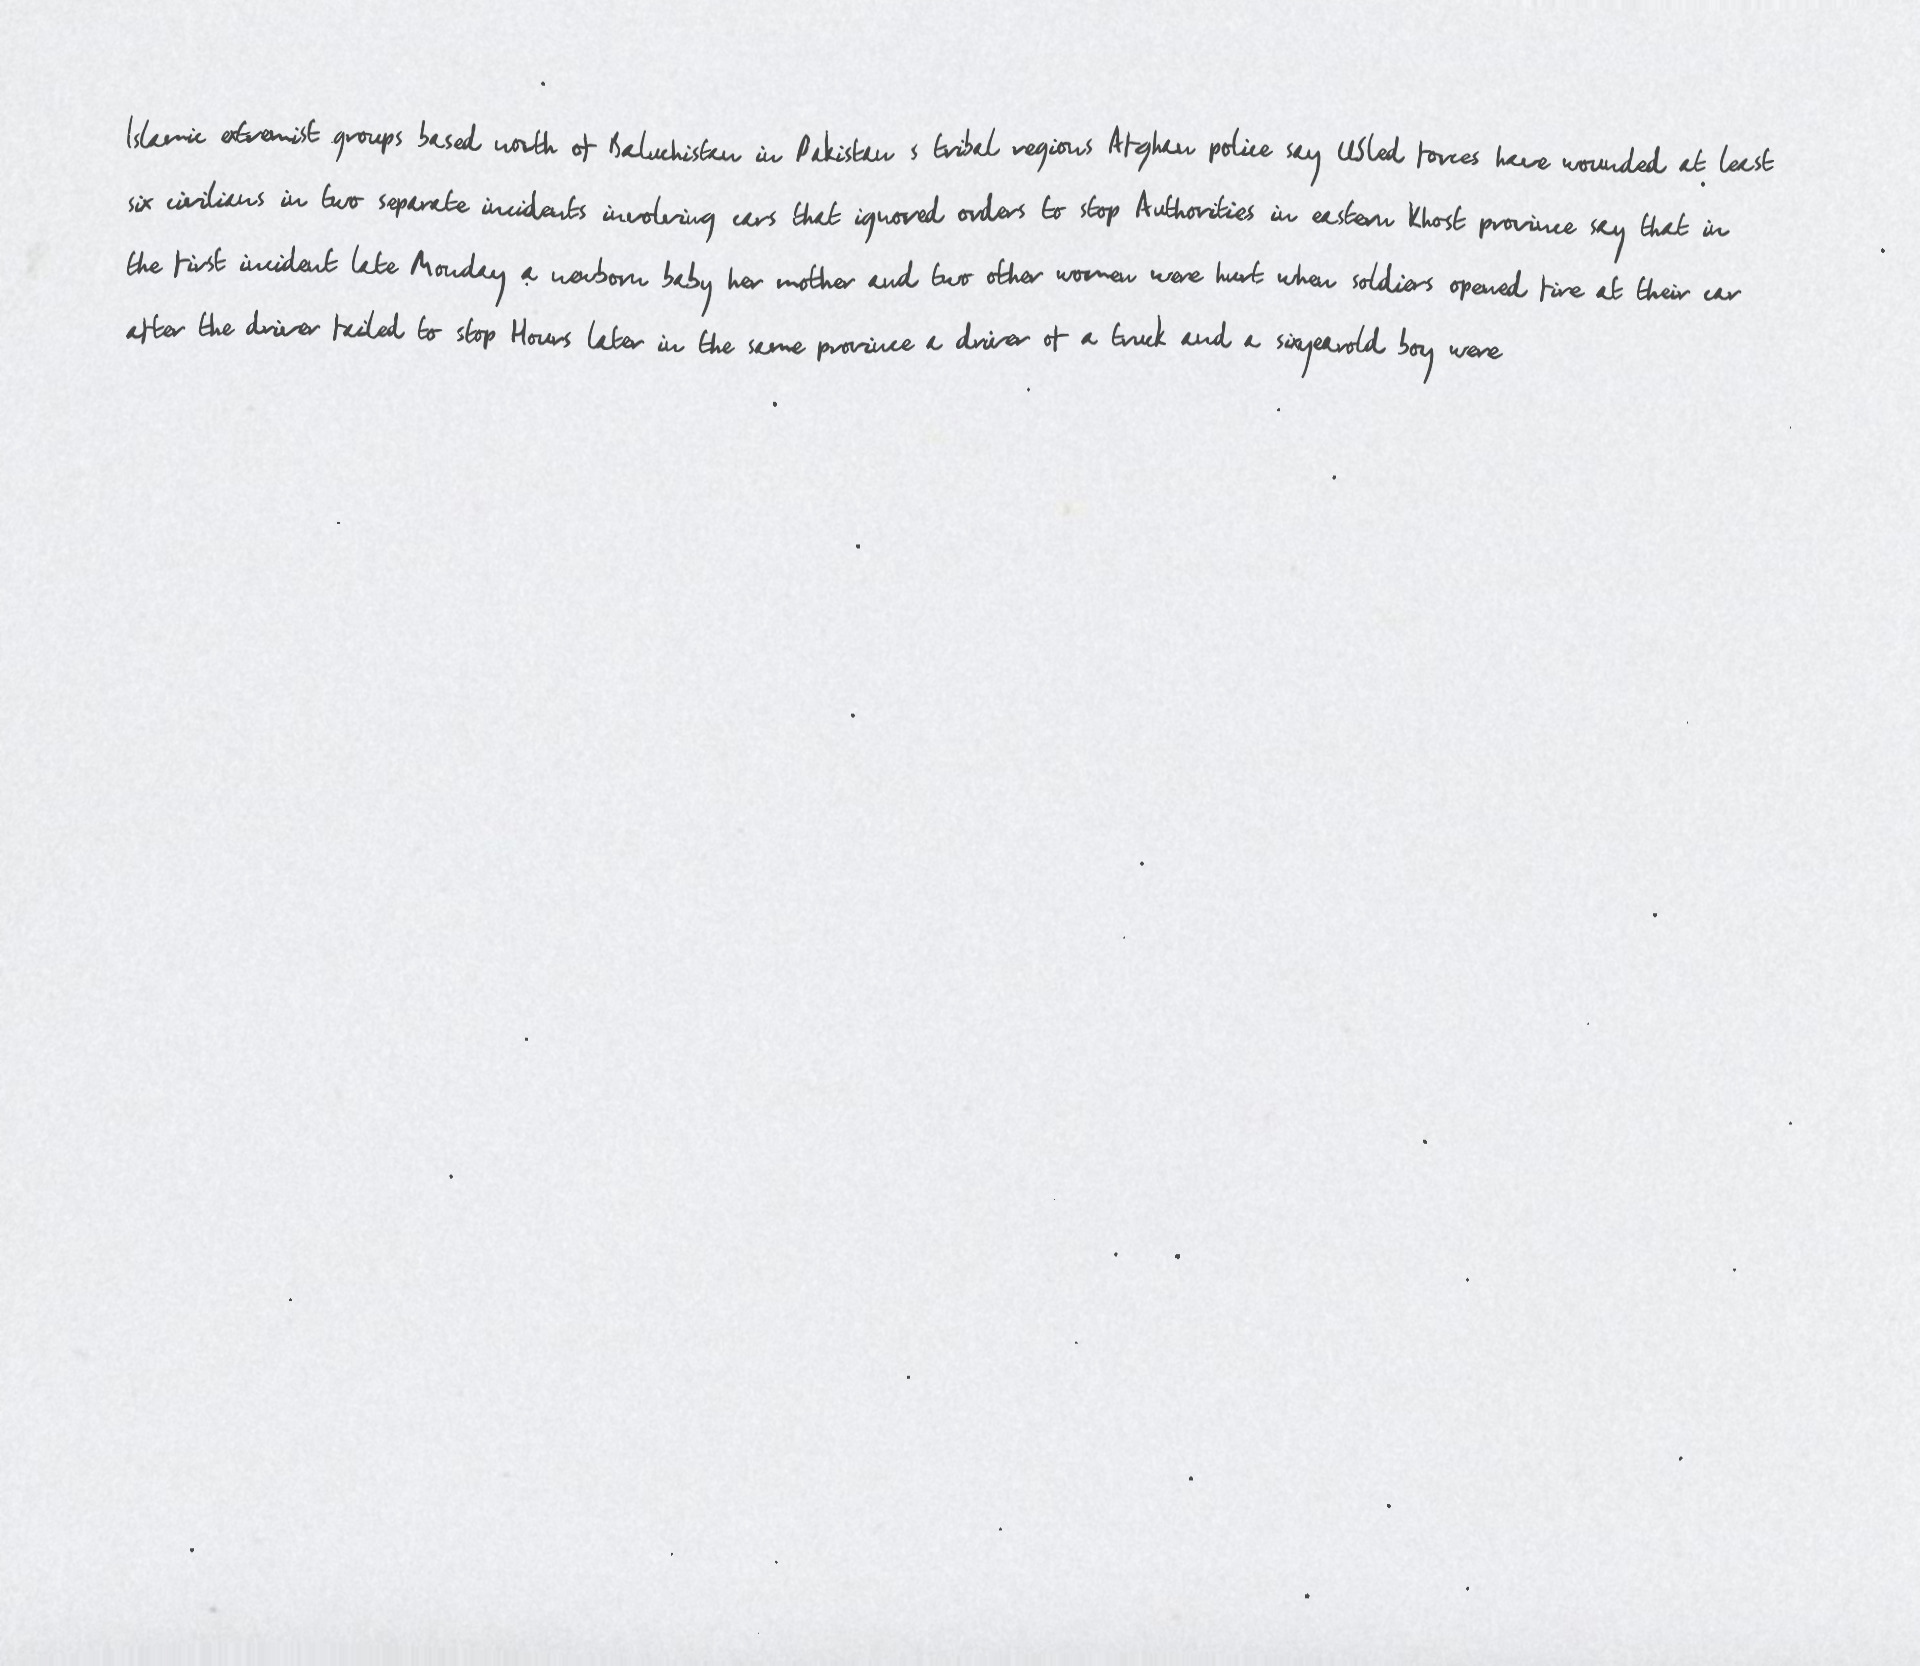 Islamic extremist groups based north of Baluchistan in Pakistan s tribal regions Afghan police say USled forces have wounded at least
six civilians in two separate incidents involving cars that ignored orders to stop Authorities in eastern Khost province say that in
the first incident late Monday a newborn baby her mother and two other women were hurt when soldiers opened fire at their car
after the driver failed to stop Hours later in the same province a driver of a truck and a sixyearold boy were